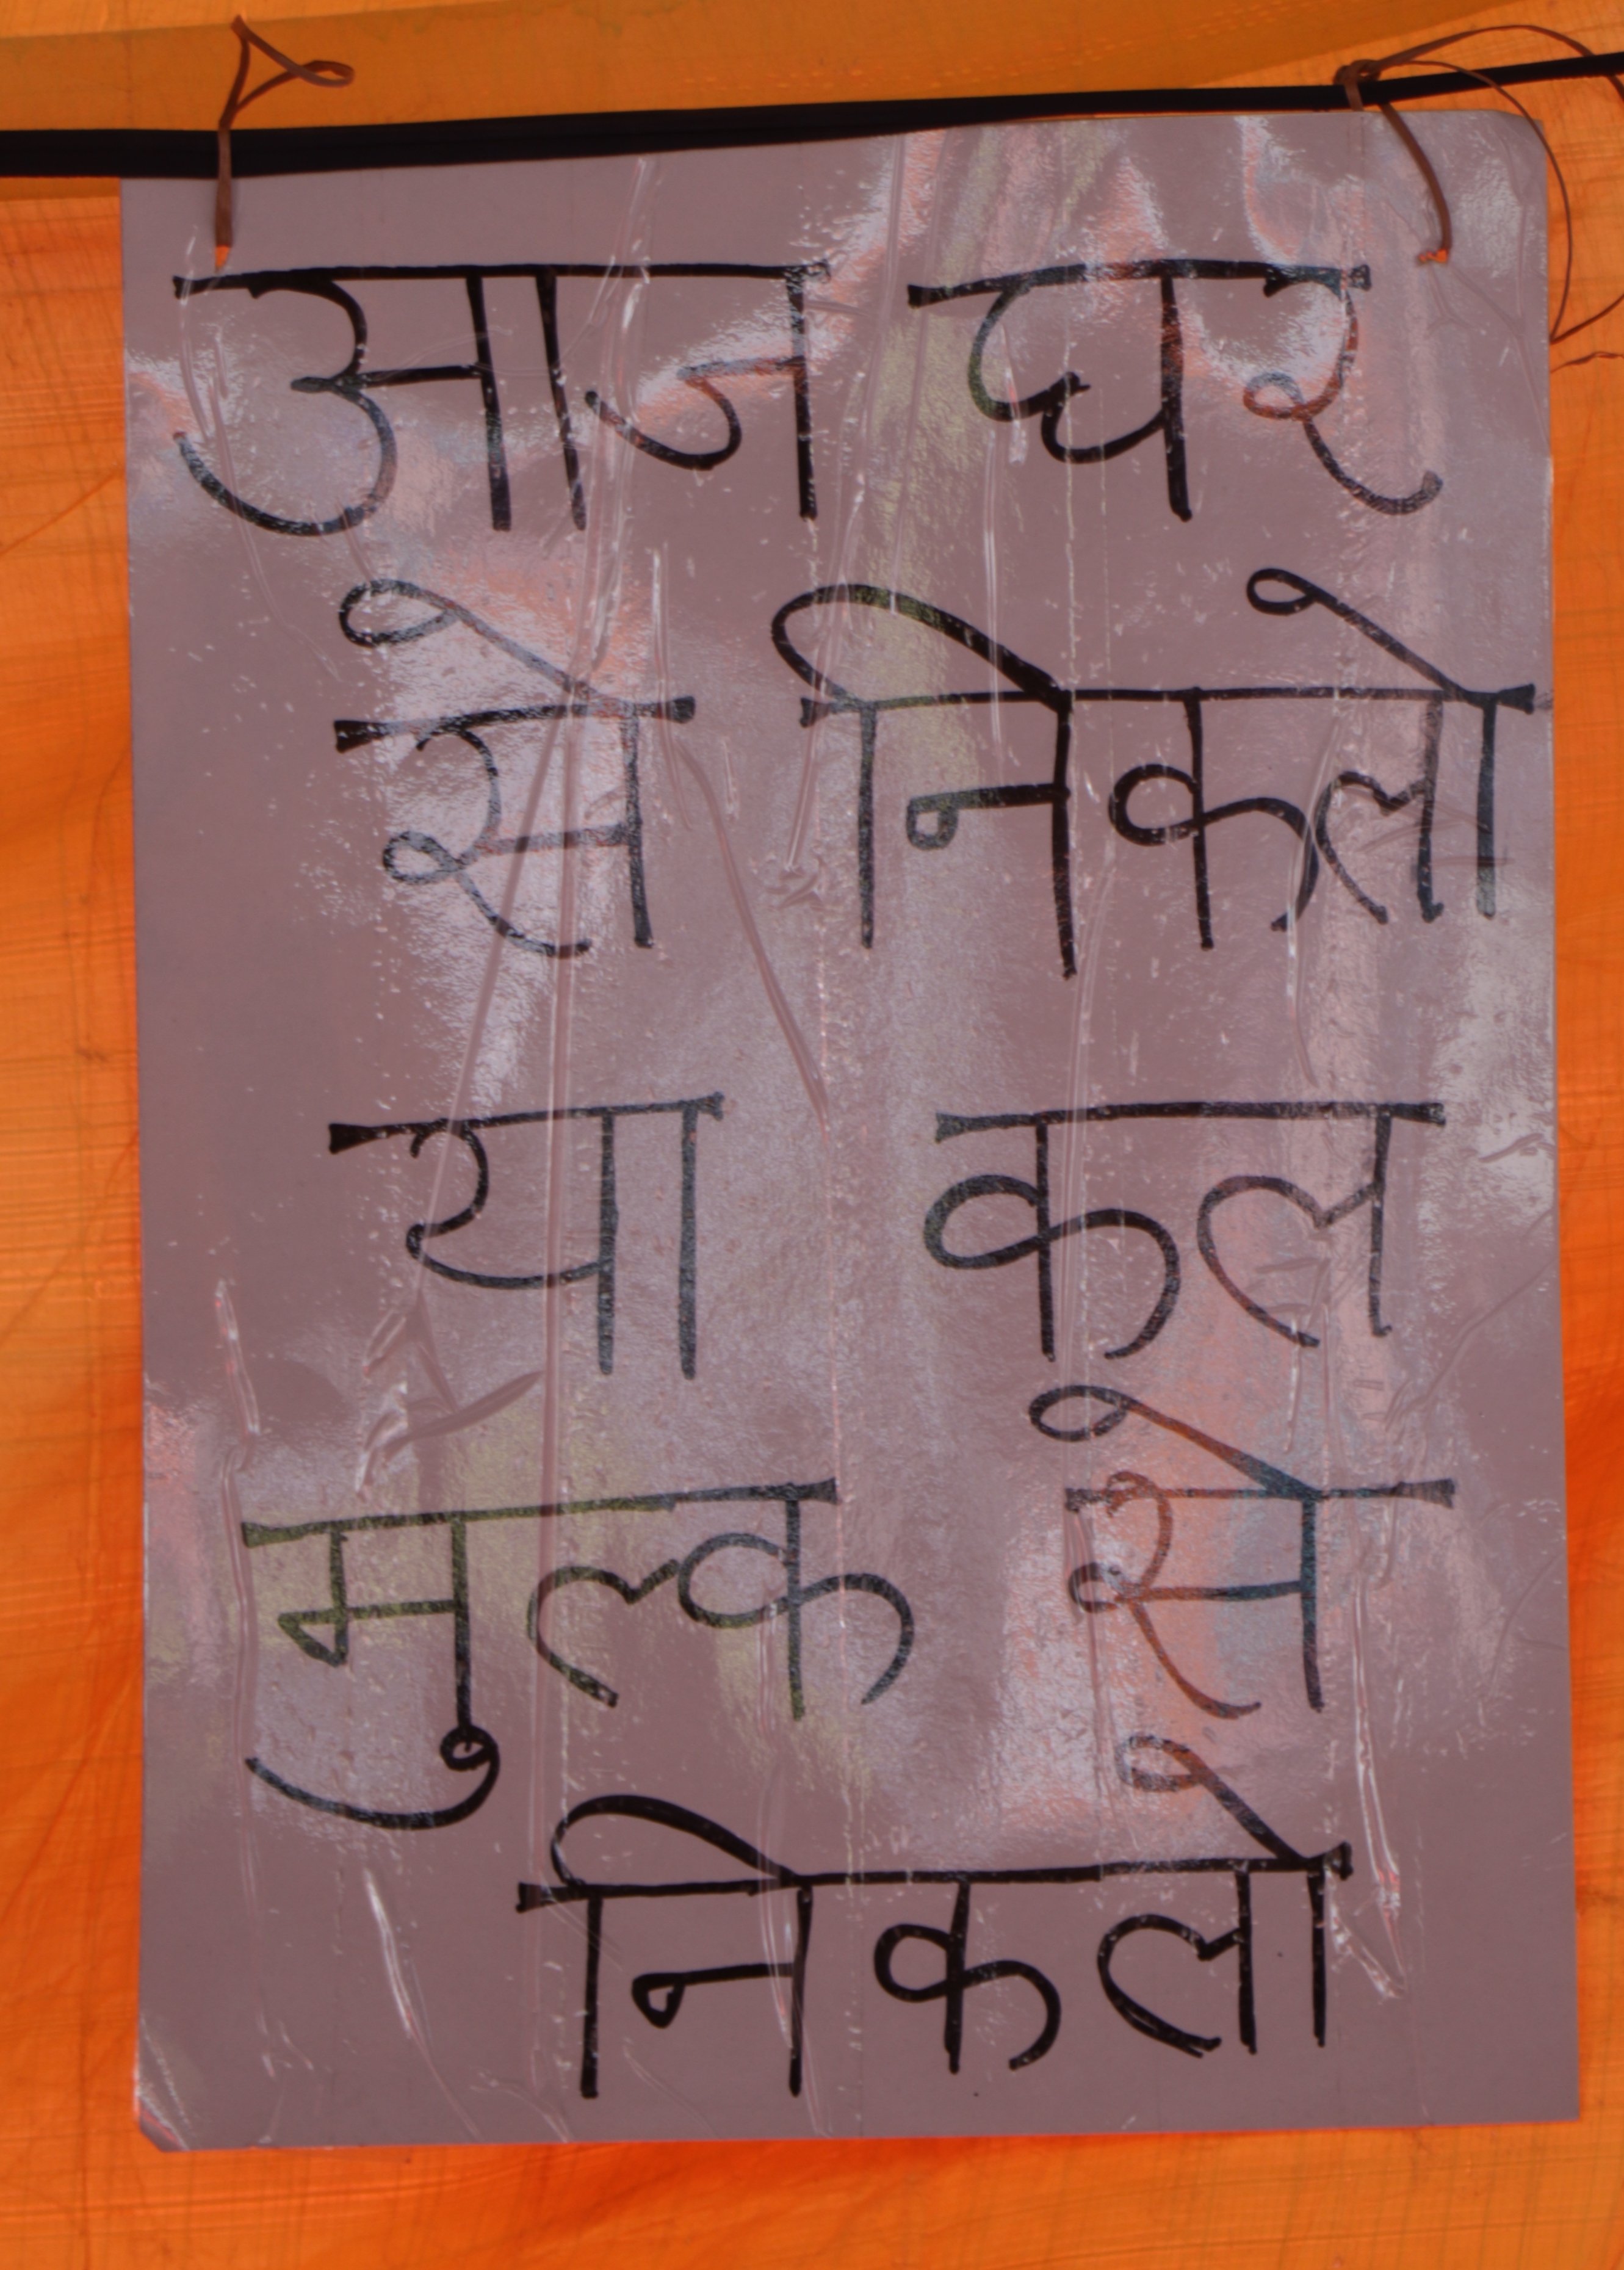 आज घर
से निकलो
या कल
मुल्क से
निकलो